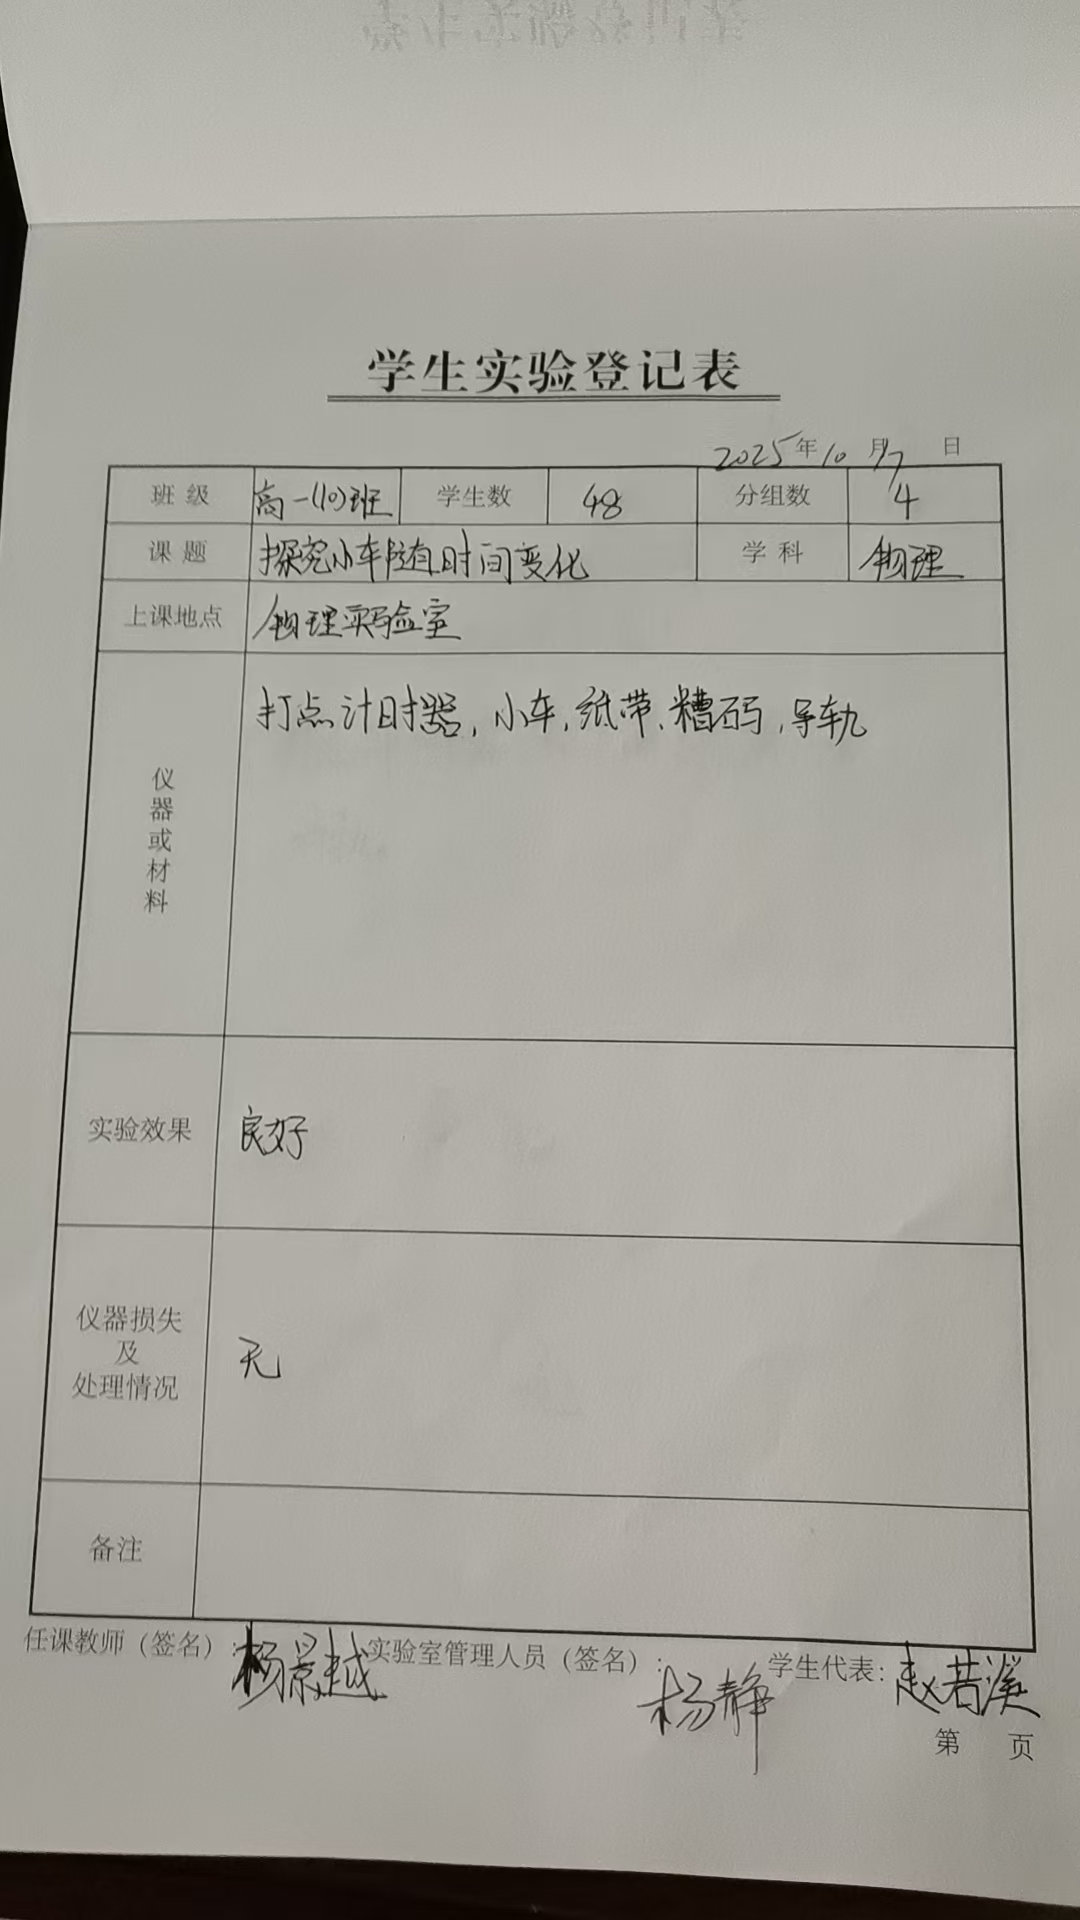 学生实验登记表
2025年10月17日
班级 高一(10)班 学生数 48 分组数 4
课题 探究小车随时间变化 学科 物理
上课地点 物理实验室
仪器或材料 打点计时器，小车，纸带、糟码，导轨
实验效果 良好
仪器损失及处理情况 无
备注
任课教师（签名）：杨景越 实验室管理人员（签名）：杨静 学生代表：赵若溪
第 页